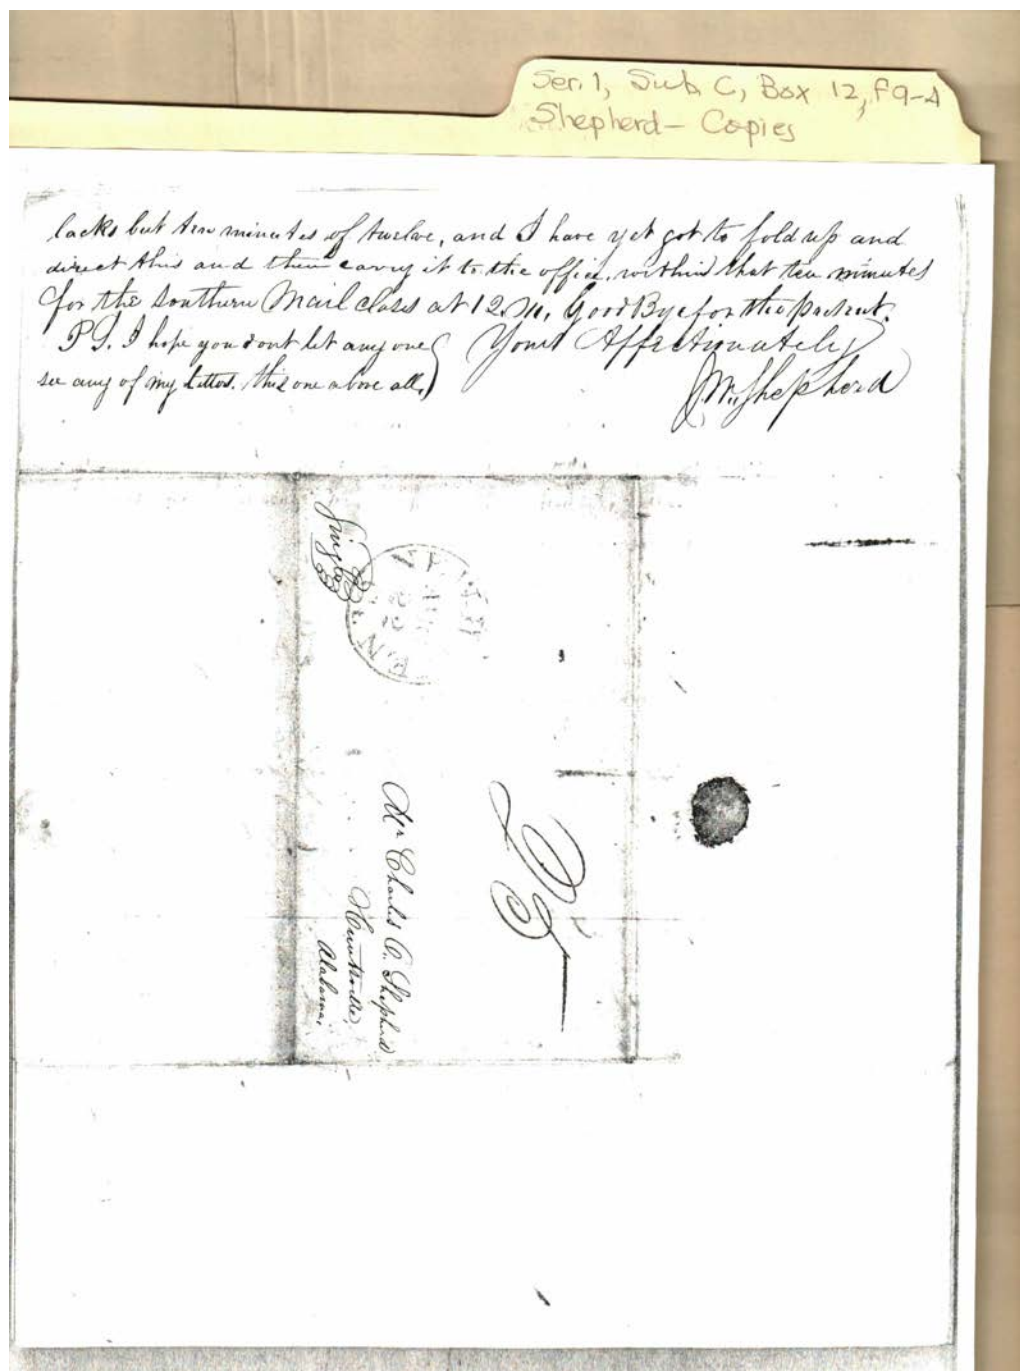 Ser. 1, Sub C, Box 12, F9-A
Shepherd - Copies
lacks but ten minutes of twelve, and I have yet got to fold up and
direct this and then carry it to the office, within that ten minutes
for the Southern Mail closes at 12. M. Good Bye for the Present.
P.S. I hope you dont let any one
see any of my letters. this one above all.
Yours Affectionately
J. M. Shepherd
Single
Mr Charles C. Shepherd
Huntsville,
Alabama.